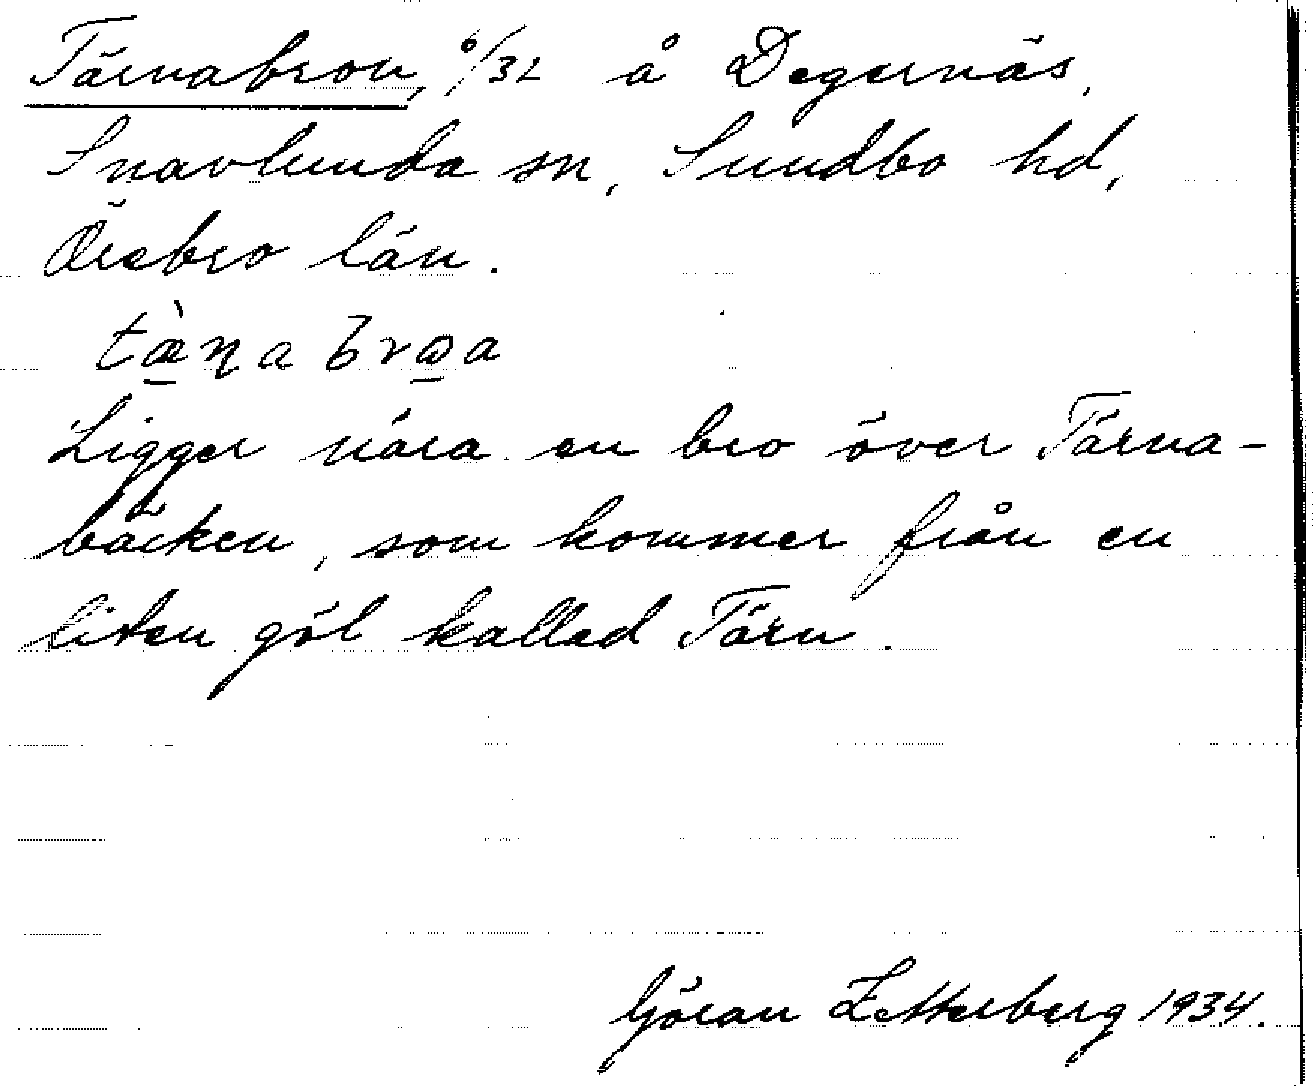 Tärnabron, ⁰/32 å Degernäs,
Snavlunda sn, Sundbo hd,
Örebro län.
tæ̀ɳabrɷa
Ligger nära en bro över Tärna-
bäcken, som kommer från en
liten göl kallad Tärn.
Göran Zetterberg 1934.